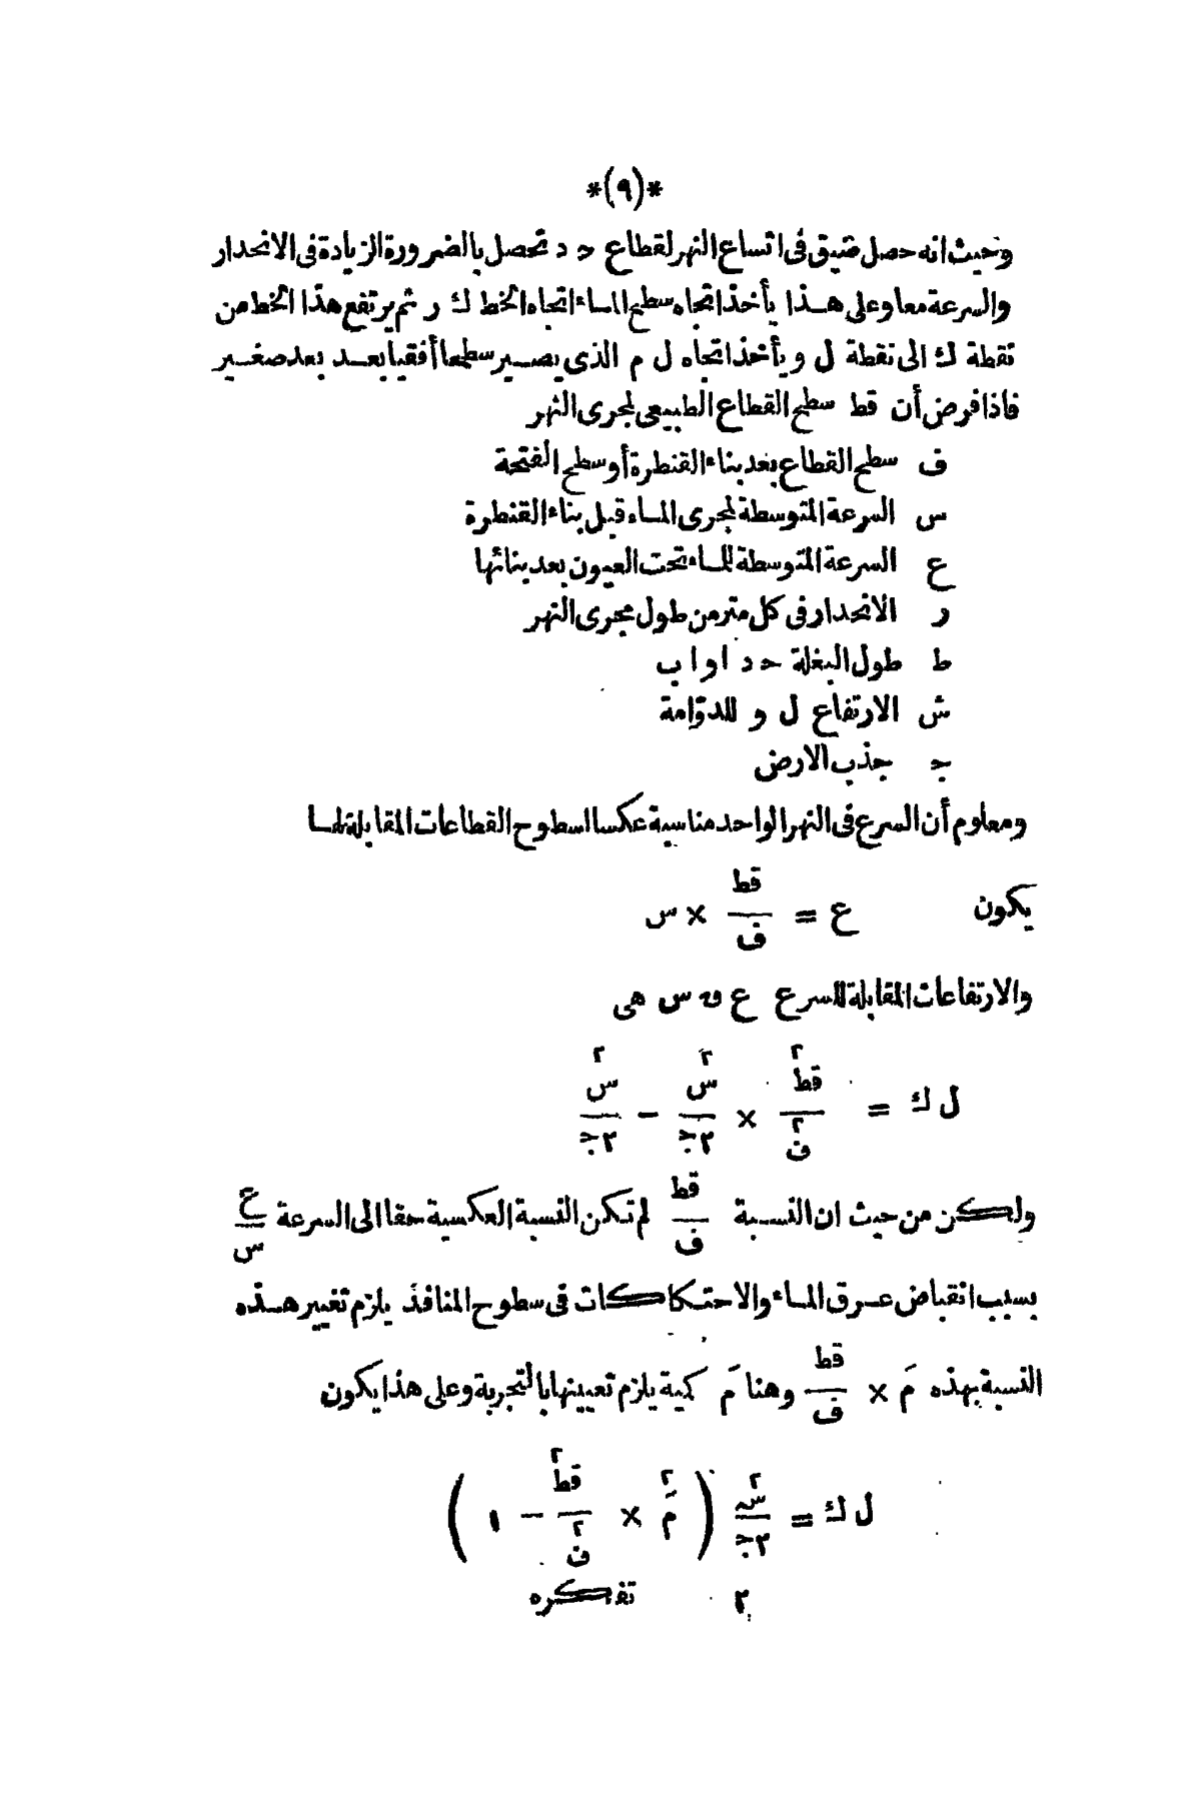 *(٩)*
وحيث انه حصل ضيق فى اتساع النهر لقطاع حـ د تحصل بالضرورة الزيادة فى الانحدار
والسرعة معا وعلى هذا يأخذ اتجاه سطح الماء اتجاه الخط ك ر ثم يرتفع هذا الخط من
نقطة ك الى نقطة ل ويأخذ اتجاه ل م الذى يصير سطحها أفقيا بعد بعد صغير
فاذا فرض أن قط سطح القطاع الطبيعى لمجرى النهر
ف سطح القطاع بعد بناء القنطرة أو سطح الفتحة
س السرعة المتوسطة لمجرى الماء قبل بناء القنطرة
ع السرعة المتوسطة للماء تحت العيون بعد بنائها
ر الانحدار فى كل متر من طول مجرى النهر
ط طول البغلة حـ د او ا ب
ش الارتفاع ل و للدوّامة
جـ جذب الارض
ومعلوم أن السرع فى النهر الواحد مناسبة عكسا لسطوح القطاعات المقابلة لها
يكون ع = قط/ف × س
والارتفاعات المقابلة للسرع ع و س هى
ل ك = قط٢/ف٢ × س٢/٢جـ − س٢/٢جـ
ولكن من حيث ان النسبة قط/ف لم تكن النسبة العكسية حقا الى السرعة ع/س
بسبب انقباض عرق الماء والاحتكاكات فى سطوح المنافذ يلزم تغيير هذه
النسبة بهذه مَ × قط/ف وهنا مَ كمية يلزم تعيينها بالتجربة وعلى هذا يكون
ل ك = س٢/٢جـ (مَ٢ × قط٢/ف٢ − ١)
٢ تفكره